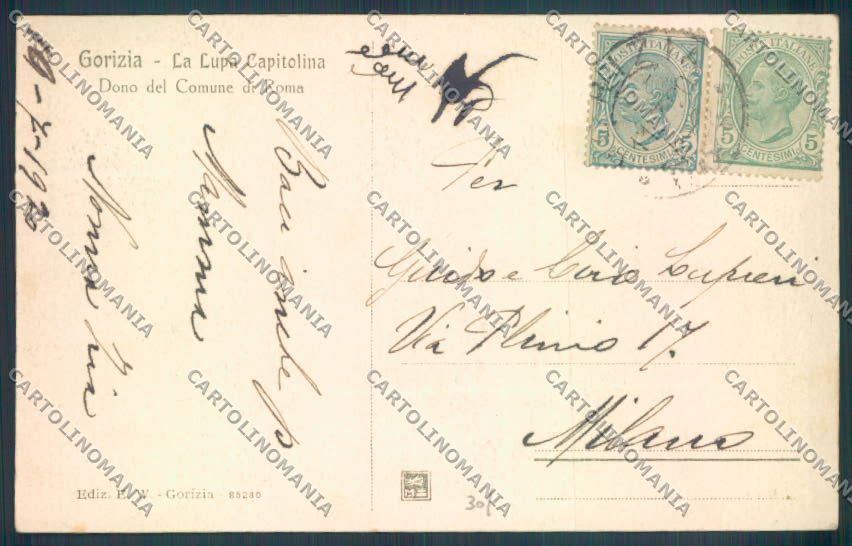 Gorizia - La Lupa Capitolina
Dono del Comune di Roma
Baci
Mamma
Nonna Zia
Per
Guido e
Via Plinio 17.
Milano
POSTE ITALIANE
5 5
CENTESIMI
POSTE ITALIANE
5 5
CENTESIMI
Ediz. E. W. - Gorizia - 85280
305
CARTOLINOMANIA